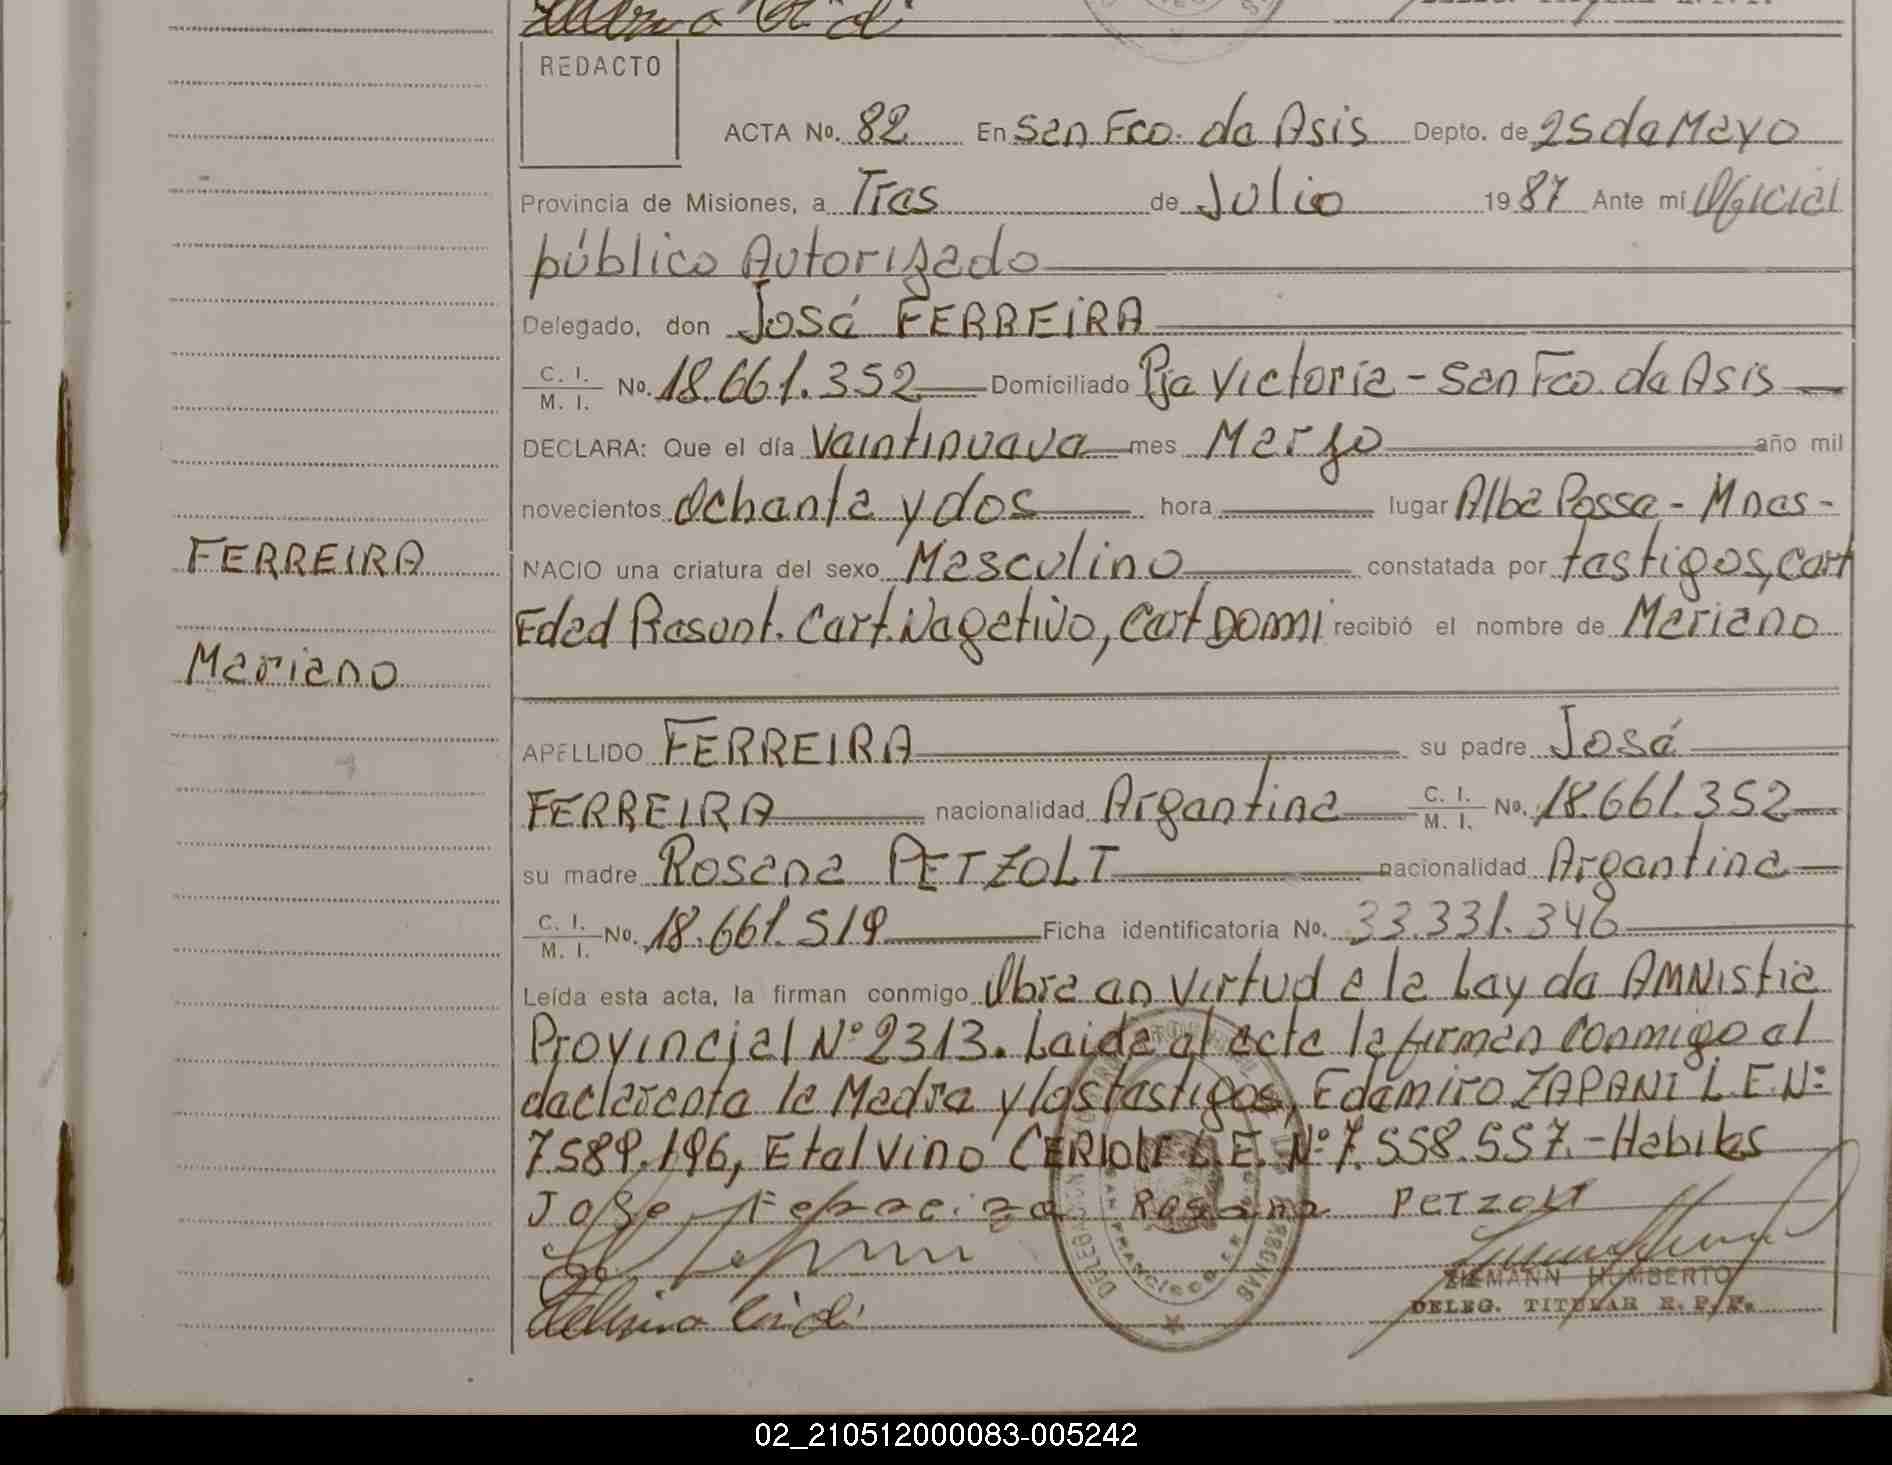 REDACTO
ACTA No. 82 En San Fco. de Asis Depto. de 25 de Mayo
Provincia de Misiones, a Tres de Julio 1987 Ante mi Oficial
público Autorizado
Delegado, don José FERREIRA
C. I. / M. I. No. 18.661.352 Domiciliado Pje Victoria - San Fco. de Asis
DECLARA: Que el día Veintinueve mes Marzo año mil
novecientos Ochenta y dos hora lugar Alba Posse - Mnes -
NACIO una criatura del sexo Masculino constatada por testigos, Cert
Edad Presunt. Cert. Negativo, Cert Domi recibió el nombre de Mariano
FERREIRA
Mariano
APELLIDO FERREIRA su padre José
FERREIRA nacionalidad Argentina C. I. / M. I. No. 18.661.352
su madre Rosana PETZOLT nacionalidad Argentina
C. I. / M. I. No. 18.661.519 Ficha identificatoria No. 33.331.346
Leída esta acta, la firman conmigo Obra en virtud a la Ley de AMNistia
Provincial Nº 2313. Leida el acta la firman conmigo el
declarente la Madre y los testigos, Edemiro ZAPANI L.E. Nº
7589.196, Etalvino L.E. Nº 7.558.557.- Habiles
Jose Ferreira Rosana Petzolt
ZIEMANN HUMBERTO
DELEG. TITULAR R. P. P.
SAN FRANCISCO
02_210512000083-005242